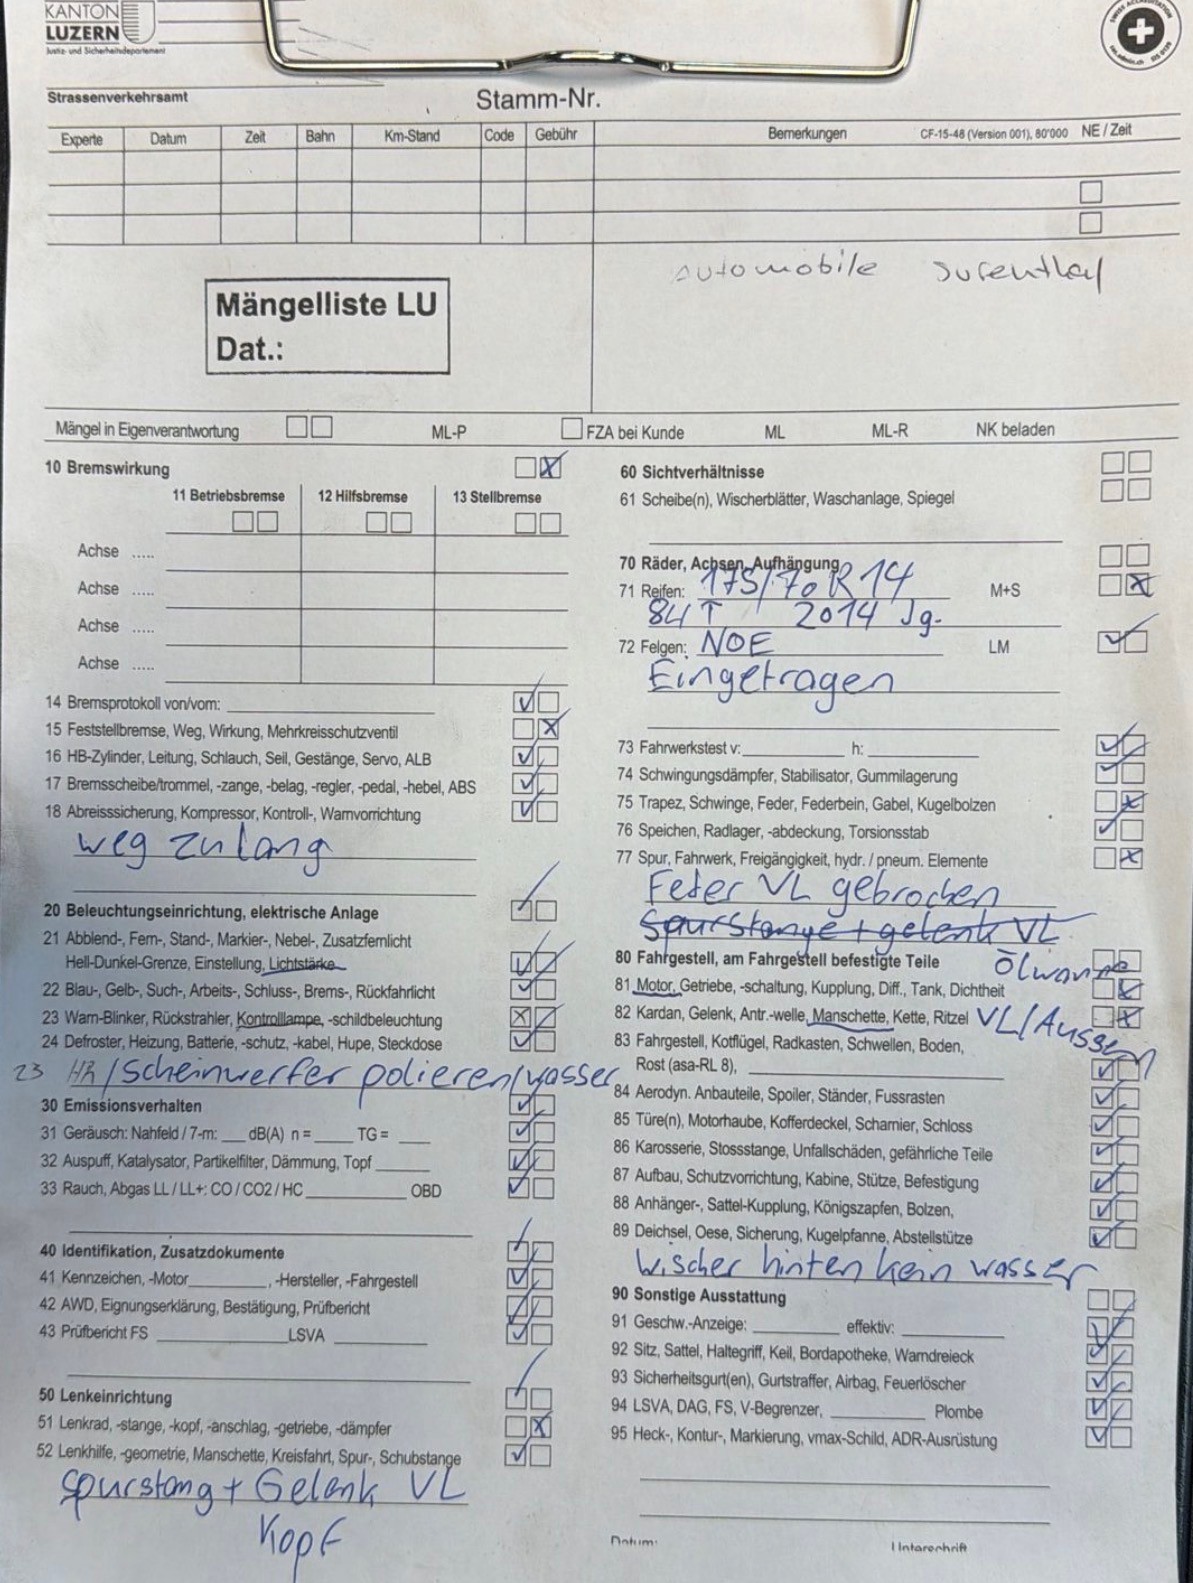 KANTON
LUZERN
Justiz- und Sicherheitsdepartement
Strassenverkehrsamt
Stamm-Nr.
Experte Datum Zeit Bahn Km-Stand Code Gebühr Bemerkungen CF-15-48 (Version 001), 80'000 NE / Zeit
automobile surenthal
Mängelliste LU
Dat.:
Mängel in Eigenverantwortung ML-P FZA bei Kunde ML ML-R NK beladen
10 Bremswirkung
11 Betriebsbremse 12 Hilfsbremse 13 Stellbremse
Achse .....
Achse .....
Achse .....
Achse .....
14 Bremsprotokoll von/vom:
15 Feststellbremse, Weg, Wirkung, Mehrkreisschutzventil
16 HB-Zylinder, Leitung, Schlauch, Seil, Gestänge, Servo, ALB
17 Bremsscheibe/trommel, -zange, -belag, -regler, -pedal, -hebel, ABS
18 Abreisssicherung, Kompressor, Kontroll-, Warnvorrichtung
weg zu lang
20 Beleuchtungseinrichtung, elektrische Anlage
21 Abblend-, Fern-, Stand-, Markier-, Nebel-, Zusatzfernlicht
Hell-Dunkel-Grenze, Einstellung, Lichtstärke
22 Blau-, Gelb-, Such-, Arbeits-, Schluss-, Brems-, Rückfahrlicht
23 Warn-Blinker, Rückstrahler, Kontrolllampe, -schildbeleuchtung
24 Defroster, Heizung, Batterie, -schutz, -kabel, Hupe, Steckdose
23 HR/Scheinwerfer polieren/wasser
30 Emissionsverhalten
31 Geräusch: Nahfeld / 7-m: dB(A) n = TG =
32 Auspuff, Katalysator, Partikelfilter, Dämmung, Topf
33 Rauch, Abgas LL / LL+: CO / CO2 / HC OBD
40 Identifikation, Zusatzdokumente
41 Kennzeichen, -Motor , -Hersteller, -Fahrgestell
42 AWD, Eignungserklärung, Bestätigung, Prüfbericht
43 Prüfbericht FS LSVA
50 Lenkeinrichtung
51 Lenkrad, -stange, -kopf, -anschlag, -getriebe, -dämpfer
52 Lenkhilfe, -geometrie, Manschette, Kreisfahrt, Spur-, Schubstange
Spurstang + Gelenk VL
Kopf
60 Sichtverhältnisse
61 Scheibe(n), Wischerblätter, Waschanlage, Spiegel
70 Räder, Achsen, Aufhängung
71 Reifen: 175/70 R 14 M+S
84T 2014 Jg.
72 Felgen: NOE LM
Eingetragen
73 Fahrwerkstest v: h:
74 Schwingungsdämpfer, Stabilisator, Gummilagerung
75 Trapez, Schwinge, Feder, Federbein, Gabel, Kugelbolzen
76 Speichen, Radlager, -abdeckung, Torsionsstab
77 Spur, Fahrwerk, Freigängigkeit, hydr. / pneum. Elemente
Feder VL gebrochen
Spurstange + gelenk VL
80 Fahrgestell, am Fahrgestell befestigte Teile Ölwanne
81 Motor, Getriebe, -schaltung, Kupplung, Diff., Tank, Dichtheit
82 Kardan, Gelenk, Antr.-welle, Manschette, Kette, Ritzel VL/Aussen
83 Fahrgestell, Kotflügel, Radkasten, Schwellen, Boden,
Rost (asa-RL 8),
84 Aerodyn. Anbauteile, Spoiler, Ständer, Fussrasten
85 Türe(n), Motorhaube, Kofferdeckel, Scharnier, Schloss
86 Karosserie, Stossstange, Unfallschäden, gefährliche Teile
87 Aufbau, Schutzvorrichtung, Kabine, Stütze, Befestigung
88 Anhänger-, Sattel-Kupplung, Königszapfen, Bolzen,
89 Deichsel, Oese, Sicherung, Kugelpfanne, Abstellstütze
Wischer hinten kein wasser
90 Sonstige Ausstattung
91 Geschw.-Anzeige: effektiv:
92 Sitz, Sattel, Haltegriff, Keil, Bordapotheke, Warndreieck
93 Sicherheitsgurt(en), Gurtstraffer, Airbag, Feuerlöscher
94 LSVA, DAG, FS, V-Begrenzer, Plombe
95 Heck-, Kontur-, Markierung, vmax-Schild, ADR-Ausrüstung
Datum: Unterschrift